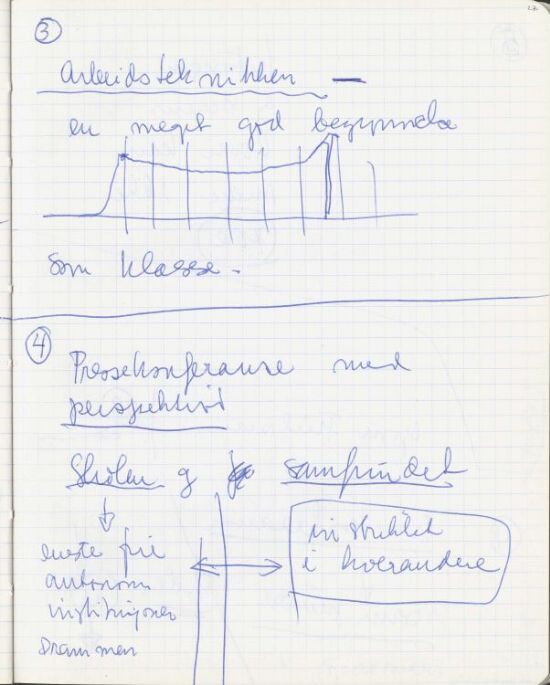 ③
Arbeidsteknikken —
en meget god begynnelse
som klasse.
④
Pressekonferanse med
perspektiv
Skolen og samfundet
eneste frie
autonom
institusjoner
Drammen
i hverandre